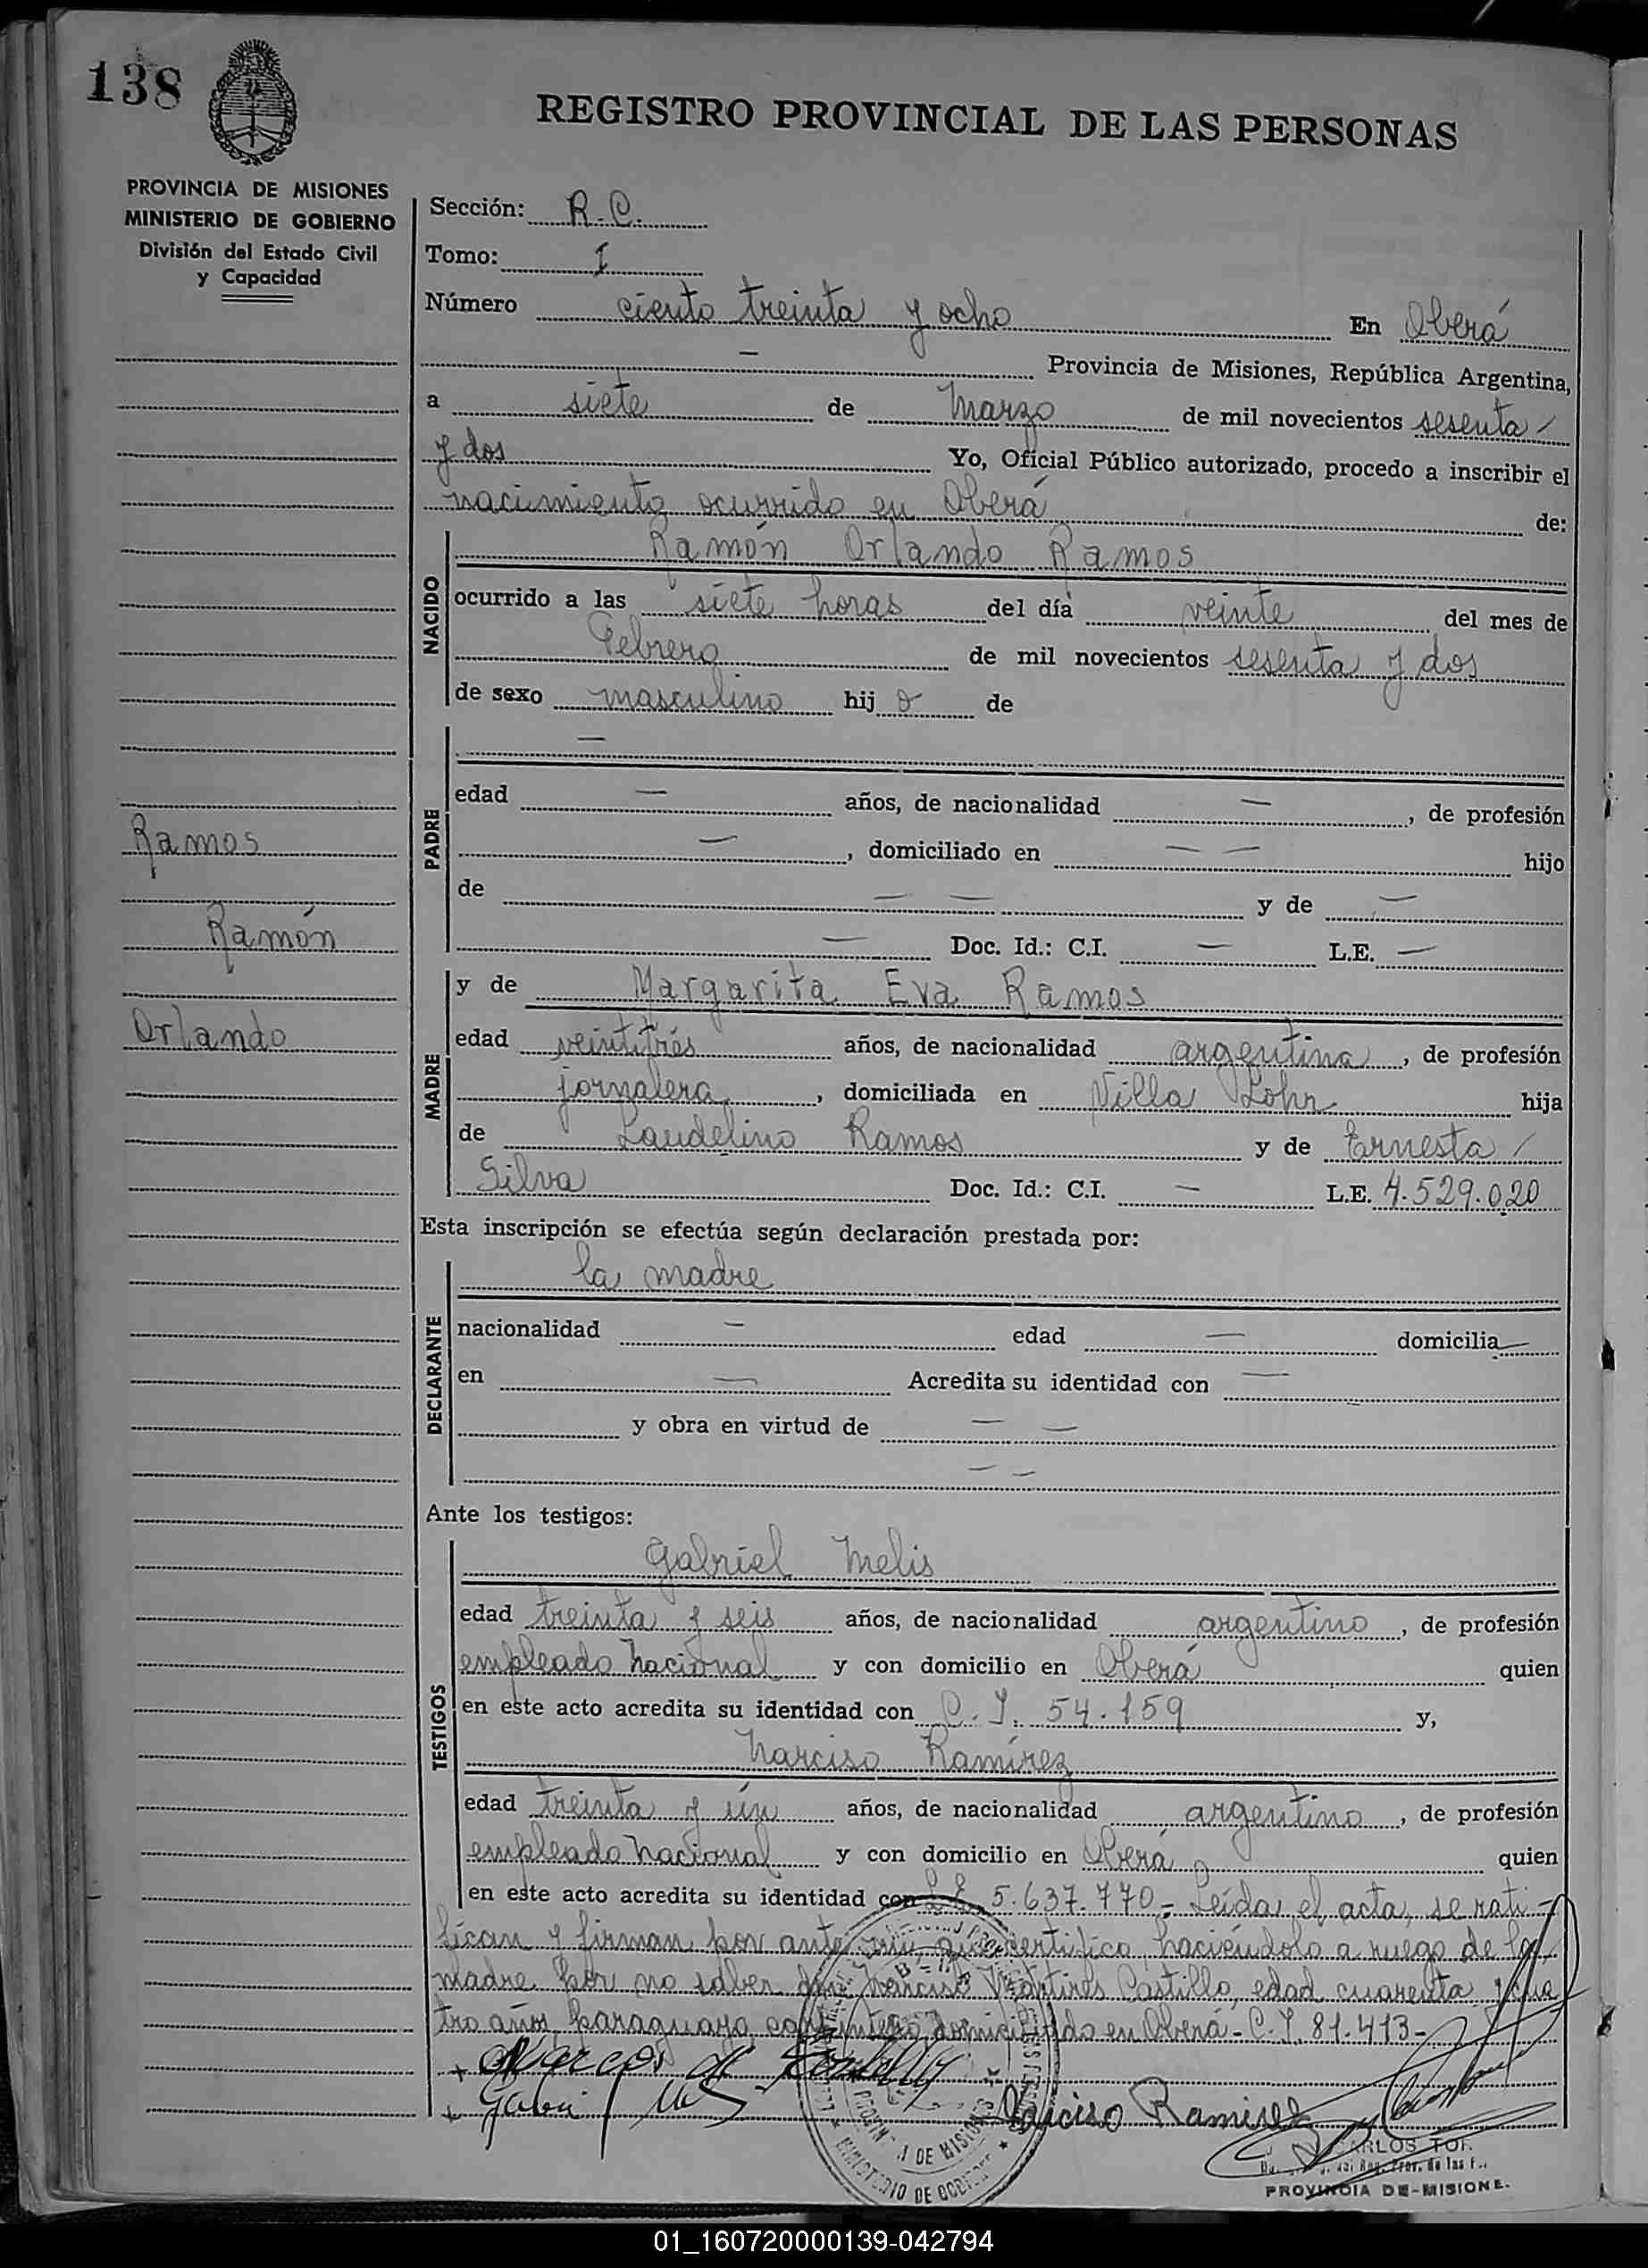 138
REGISTRO PROVINCIAL DE LAS PERSONAS
PROVINCIA DE MISIONES
MINISTERIO DE GOBIERNO
División del Estado Civil
y Capacidad
Sección: R.C.
Tomo: I
Número ciento treinta y ocho En Oberá
— Provincia de Misiones, República Argentina,
a siete de Marzo de mil novecientos sesenta /
y dos Yo, Oficial Público autorizado, procedo a inscribir el
nacimiento ocurrido en Oberá de:
NACIDO
Ramón Orlando Ramos
ocurrido a las siete horas del día veinte del mes de
Febrero de mil novecientos sesenta y dos
de sexo masculino hij o de
PADRE
—
edad — años, de nacionalidad —, de profesión
—, domiciliado en — — hijo
de — — y de —
— Doc. Id.: C.I. — L.E. —
Ramos
Ramón
Orlando
MADRE
y de Margarita Eva Ramos
edad veintitrés años, de nacionalidad argentina, de profesión
jornalera, domiciliada en Villa Lohr hija
de Laudelino Ramos y de Ernesta /
Silva Doc. Id.: C.I. — L.E. 4.529.020
Esta inscripción se efectúa según declaración prestada por:
DECLARANTE
la madre
nacionalidad — edad — domicilia —
en — Acredita su identidad con —
y obra en virtud de — —
— —
Ante los testigos:
TESTIGOS
Gabriel Melis
edad treinta y seis años, de nacionalidad argentino, de profesión
empleado Nacional y con domicilio en Oberá quien
en este acto acredita su identidad con C.I. 54.159 y,
Narciso Ramírez
edad treinta y ún años, de nacionalidad argentino, de profesión
empleado Nacional y con domicilio en Oberá quien
en este acto acredita su identidad con L.E 5.637.770- Leída el acta, se rati-
fican y firman por ante mí que certifico haciéndolo a ruego de la
madre por no saber Castillo, edad cuarenta y cua
tro años, paraguayo, domiciliado en Oberá - C.I. 81.413-
Narciso Ramirez
CARLOS
PROVINCIA DE MISIONE.
MINISTERIO DE GOBIERNO
DE MISIONES
01_160720000139-042794